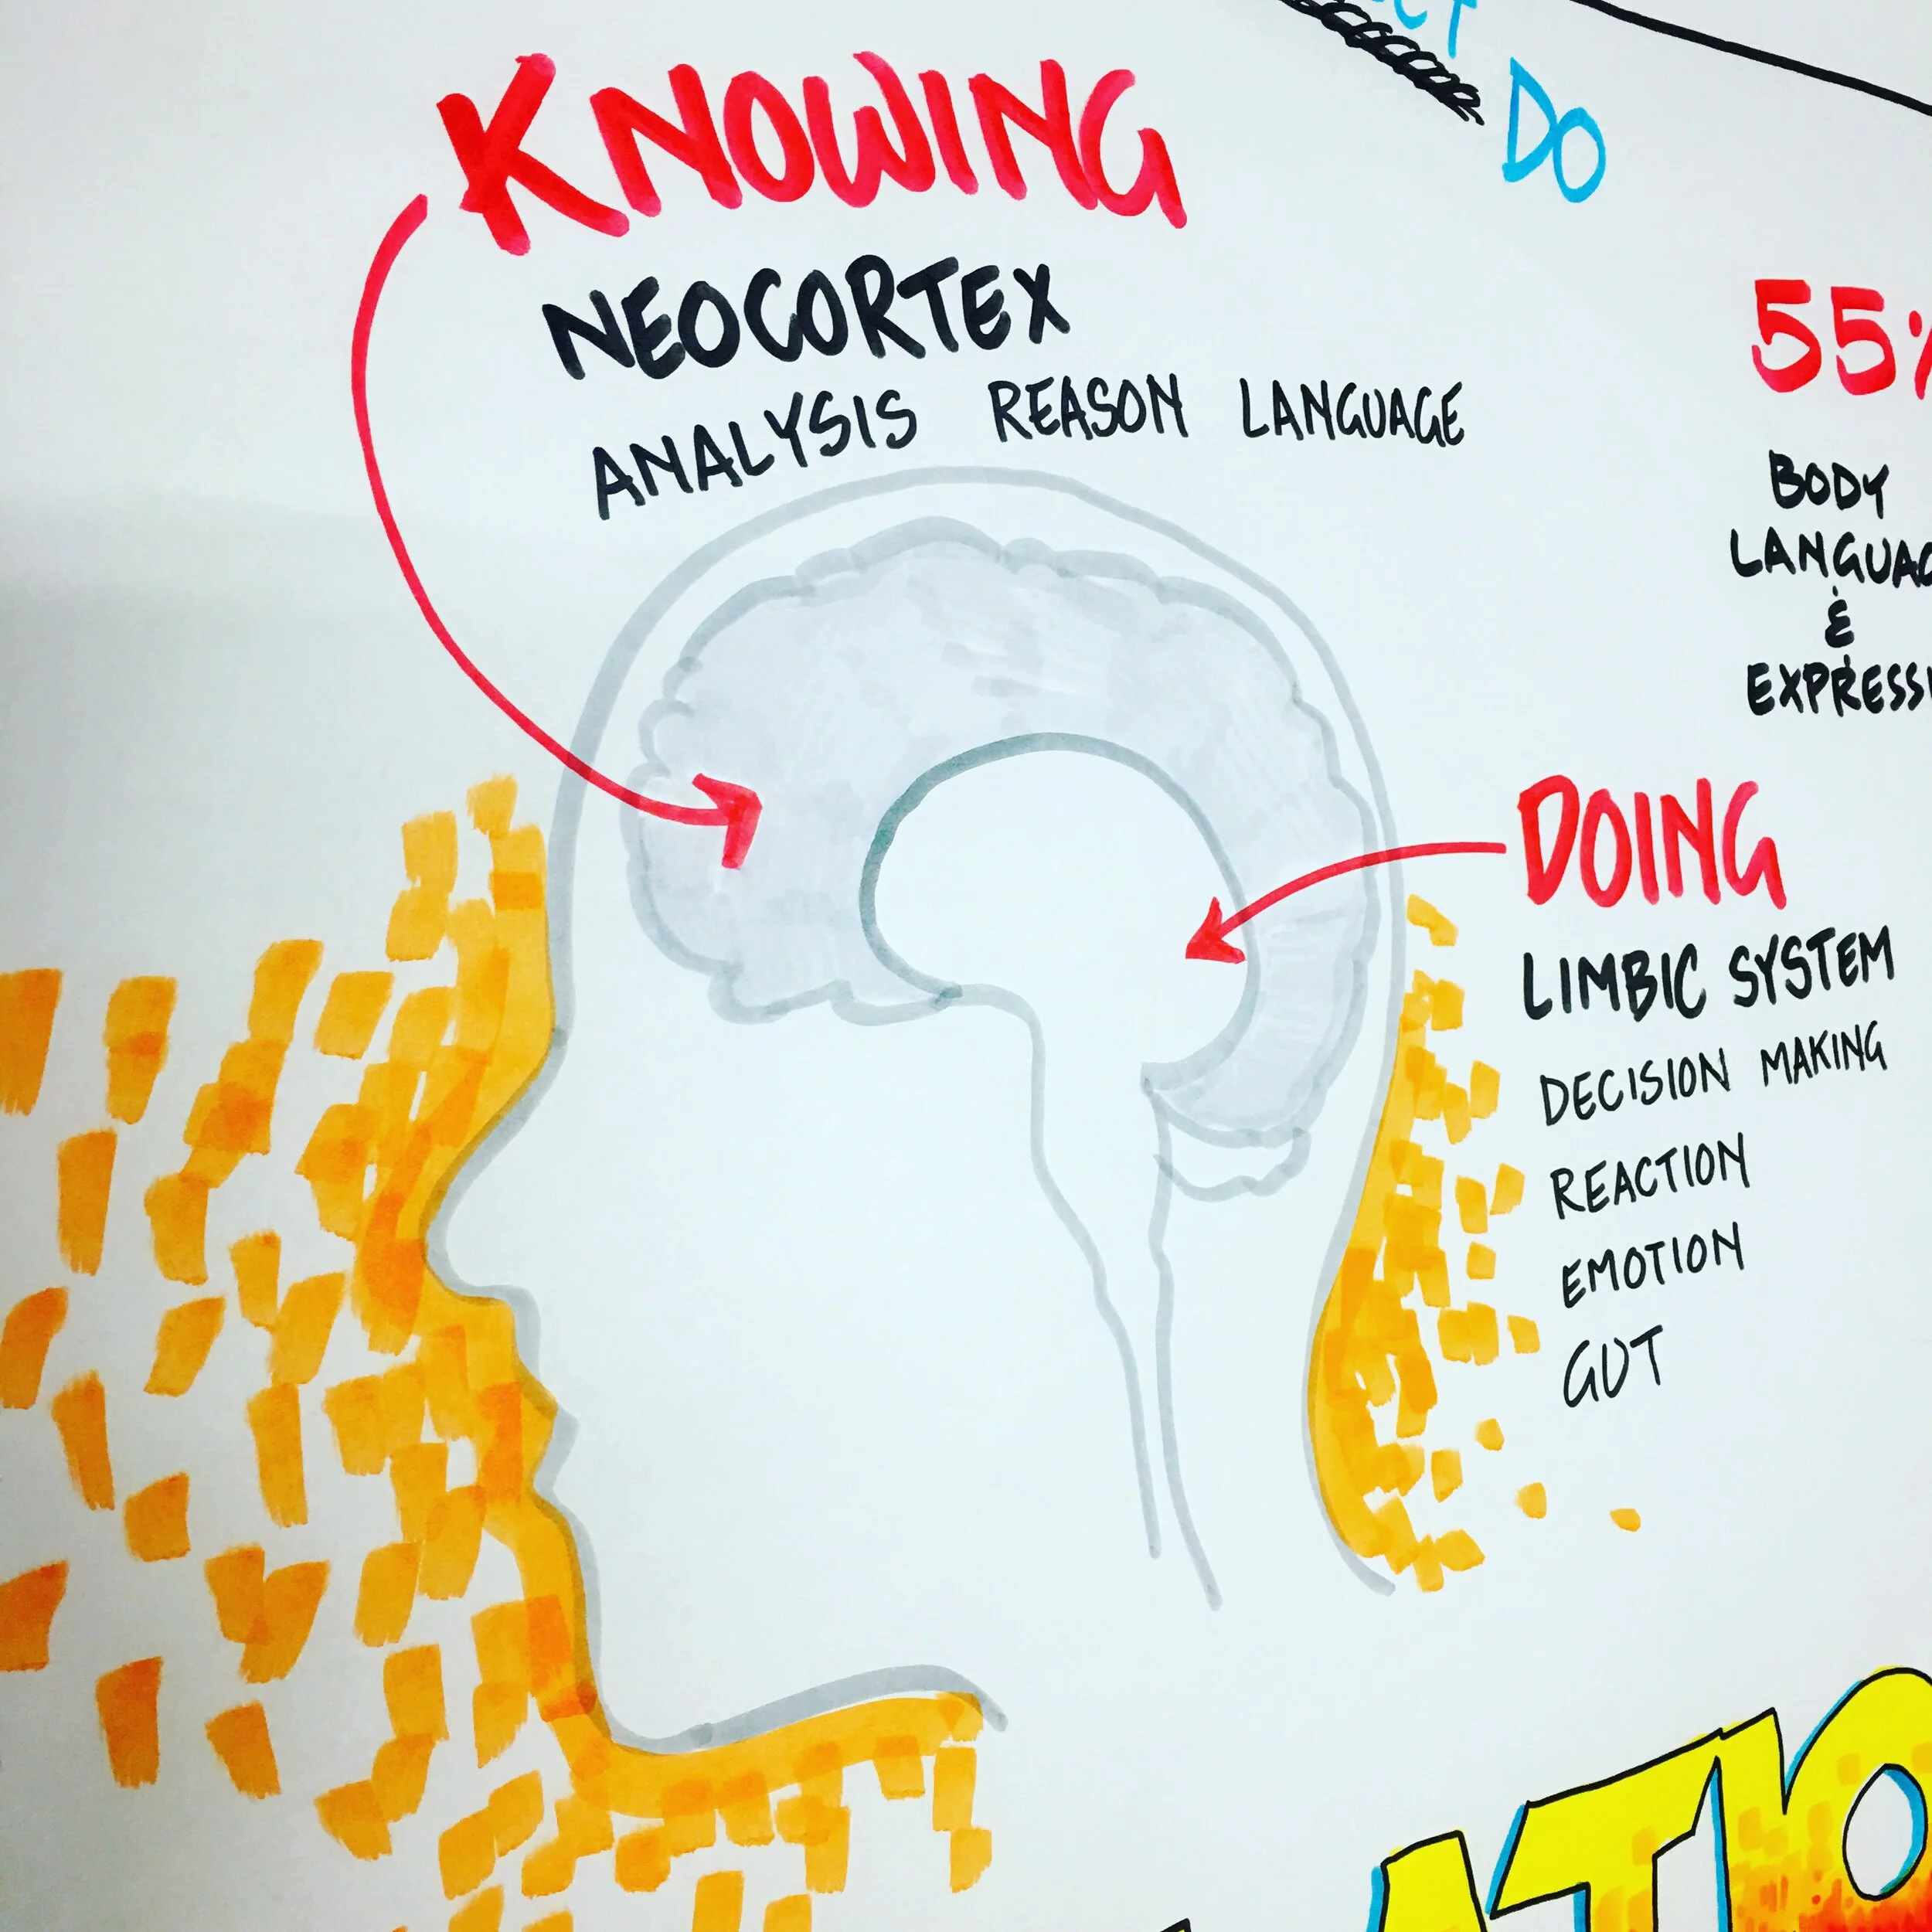 DO
KNOWING
NEOCORTEX
ANALYSIS REASON LANGUAGE
55%
BODY
&
DOING
LIMBIC SYSTEM
DECISION MAKING
REACTION
EMOTION
GUT